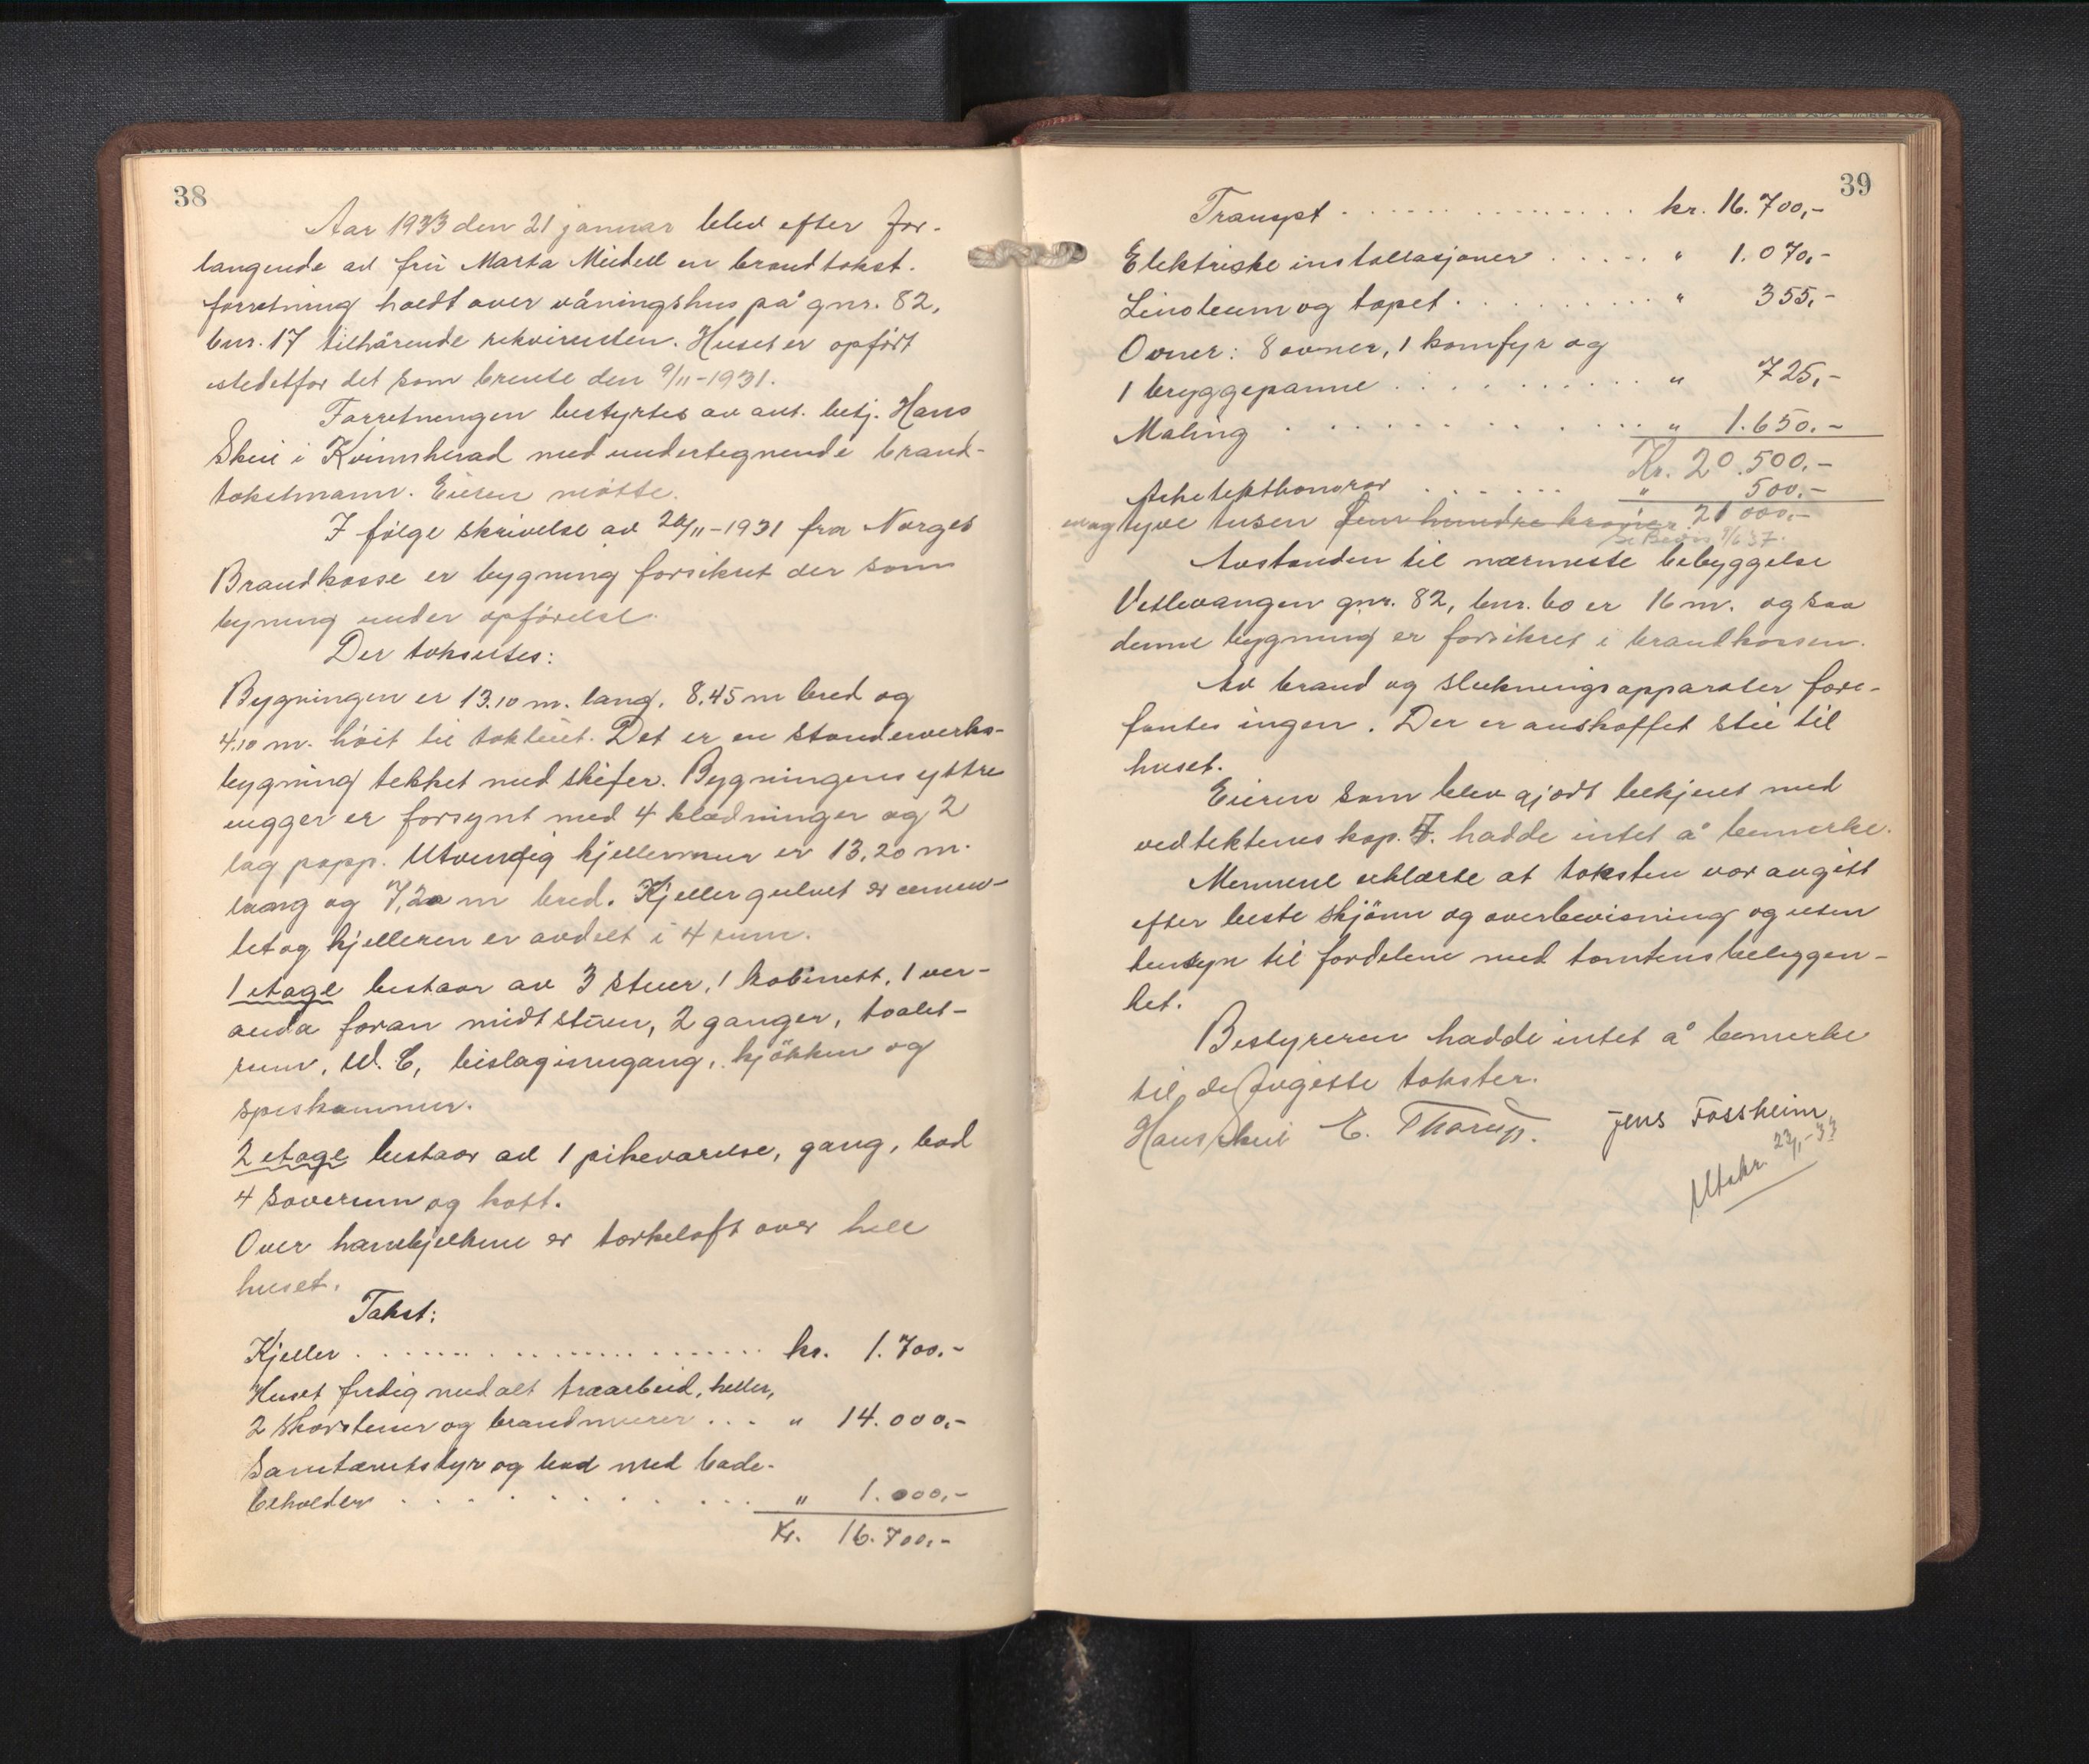 38
Aar 1933 den 21 januar blev efter for-
langende av fru Marta Miedell en brandtakst-
forretning holdt over våningshus på gnr. 82,
bnr. 17 tilhørende rekvirenten. Huset er opført
istedetfor det som brente den 9/11-1931.
Forretningen bestyrtes av ant. betj. Hans
Skei i Kvinnherad med undertegnende brand-
takstmann. Eieren møtte.
I følge skrivelse av 20/11-1931 fra Norges
Brandkasse er bygning forsikret der som
bygning under opførelse.
Der takseres:
Bygningen er 13.10 m. lang, 8.45 m bred og
4.10 m. höit til takteiet. Det er en standerverks-
bygning tekket med skifer. Bygningens yttre
vegger er forsynt med 4 klædninger og 2
lag papp. Utvendig kjellermur er 13,20 m.
lang og 7,20 m bred. Kjellergulvet er cemen-
tet og kjelleren er avdelt i 4 rum.
1 etage bestaar av 3 stuer, 1 kabinett, 1 ver-
anda foran midtstuen, 2 ganger, toalet-
rum, W.C, bislaginngang, kjökken og
spiskammer.
2 etage bestaar av 1 pikeværelse, gang, bad
4 soverum og kott.
Over hanebjelkene er tørkeloft over hele
huset.
Takst:
Kjeller . . . . . . . . . . kr. 1.700.-
Huset ferdig med alt træarbeid, heller,
2 skorstener og brandmurer . . . " 14.000,-
Sanitærutstyr og bad med bade-
beholder . . . . . . . . . . " 1.000,-
Kr. 16.700,-
39
Transpt . . . . . . . . . . kr. 16.700,-
Elektriske installasjoner . . . . . " 1.070,-
Linoleum og tapet . . . . . . . . " 355,-
Ovner: 8 ovner, 1 komfyr og
1 bryggepanne . . . . . . . . . . " 725,-
Maling . . . . . . . . . . " 1.650.-
Kr. 20.500,-
Arkitekthonorar . . . . . . " 500.-
enog tyve tusen fem hundre kroner. 21 000,-
Avstanden til nærmeste bebyggelse
Vetlevangen gnr. 82, bnr. 60 er 16 m. og saa
denne bygning er forsikret i brandkassen.
Av brand og slukningsapparater fore-
fantes ingen. Der er anskaffet stie til
huset.
Eieren som blev gjort bekjent med
vedtektenes kap. V. hadde intet å bemerke.
Mennene erklærte at taksten var avgitt
efter beste skjönn og overbevisning og uten
hensyn til fordelene med tomtens beliggen-
het.
Bestyreren hadde intet å bemerke
til de avgitte takster.
Hans Skei E. Thorup. Jens Fossheim
Utskr. 23/1-33